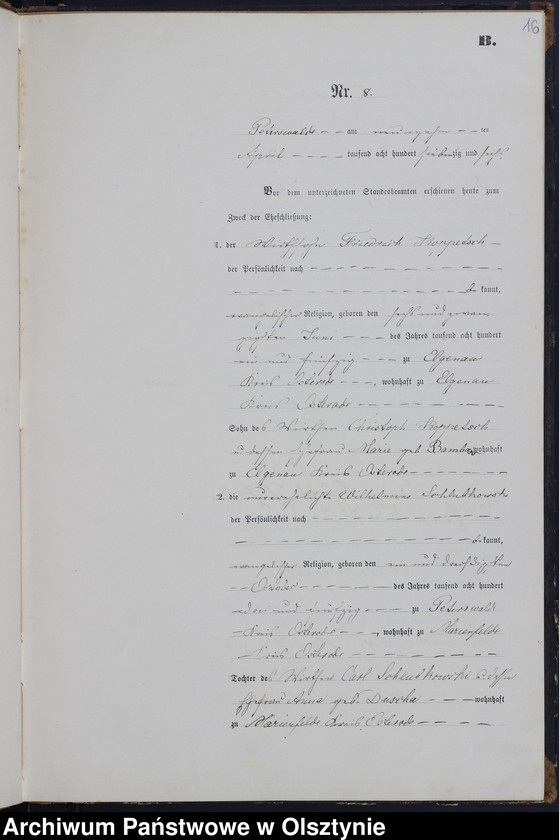 16
B.
Nr. 8.
Peterswalde am neunzehn ten
April tausend acht hundert siebenzig und sechs
Vor dem unterzeichneten Standesbeamten erschienen heute zum
Zweck der Eheschließung:
1. der Wirthsohn Friedrich
der Persönlichkeit nach
be kannt,
evangelischer Religion, geboren den sechs und zwan
zigsten Juni des Jahres tausend acht hundert
ein und fünfzig zu Elgenau
Kreis Osterode, wohnhaft zu Elgenau
Kreis Osterode
Sohn des Wirthen Christoph
u. dessen Ehefrau Marie geb. wohnhaft
zu Elgenau Kreis Osterode
2. die unverehelichte Wilhelmine Schlutkowski
der Persönlichkeit nach
be kannt,
evangelischer Religion, geboren den ein und dreißigsten
October des Jahres tausend acht hundert
und fünfzig zu Peterswalde
Kreis Osterode, wohnhaft zu Marienfelde
Kreis Osterode
Tochter des Wirthen Carl Schlutkowski u. dessen
Ehefrau Anna geb. Duscha wohnhaft
zu Marienfelde Kreis Osterode
Archiwum Państwowe w Olsztynie